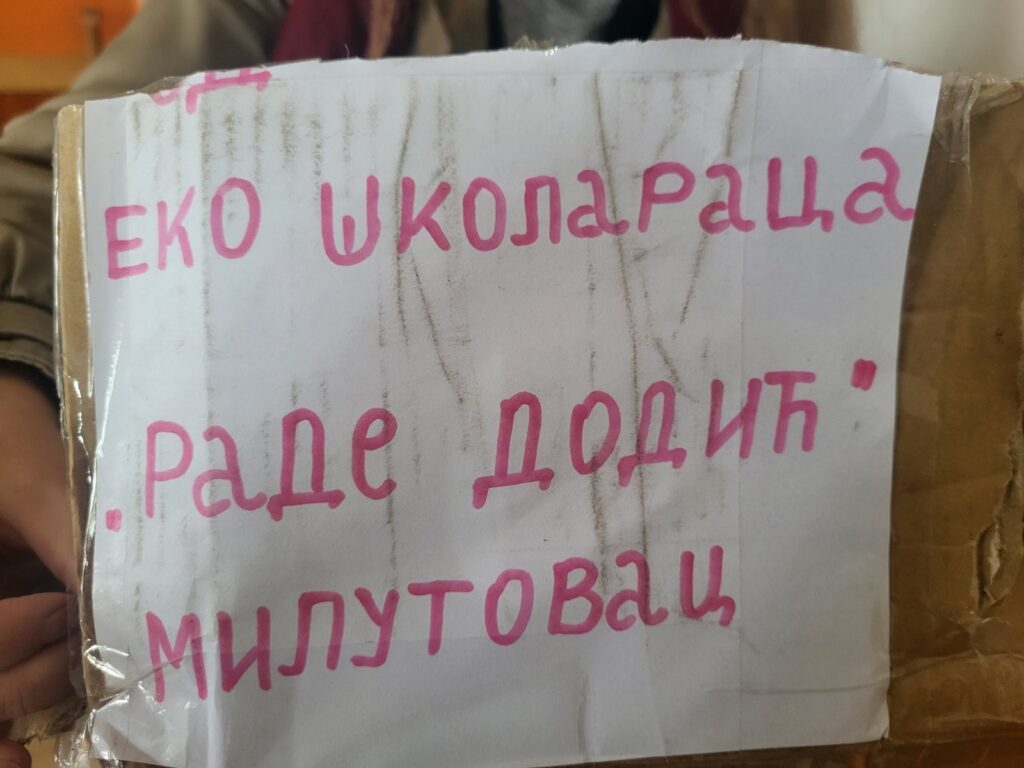 ОД
ЕКО ШКОЛАРАЦА
"РАДЕ ДОДИЋ"
МИЛУТОВАЦ